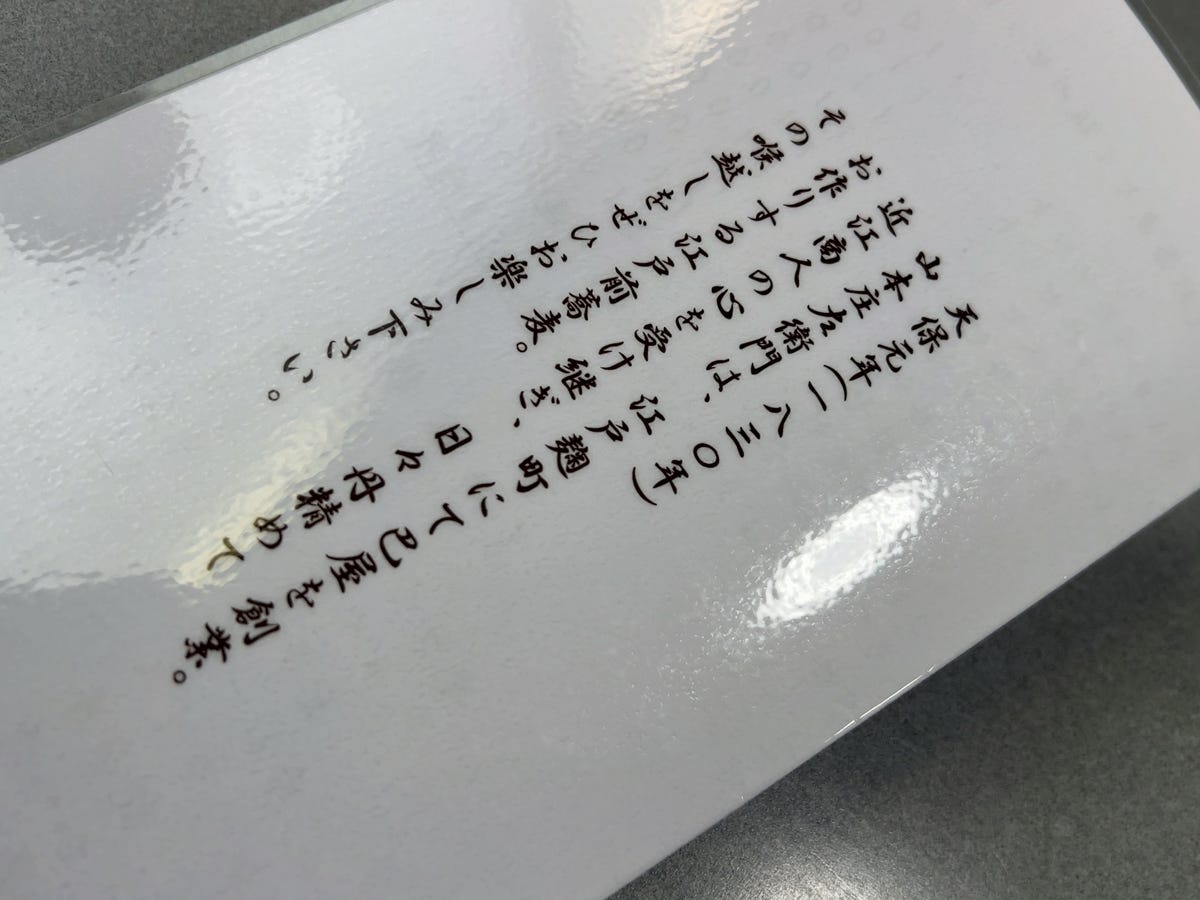 天保元年(一八三〇年)
山本庄左衛門は、江戸麹町にて巴屋を創業。
近江商人の心を受け継ぎ、日々丹精めて
お作りする江戸前蕎麦。
その喉越しをぜひお楽しみ下さい。